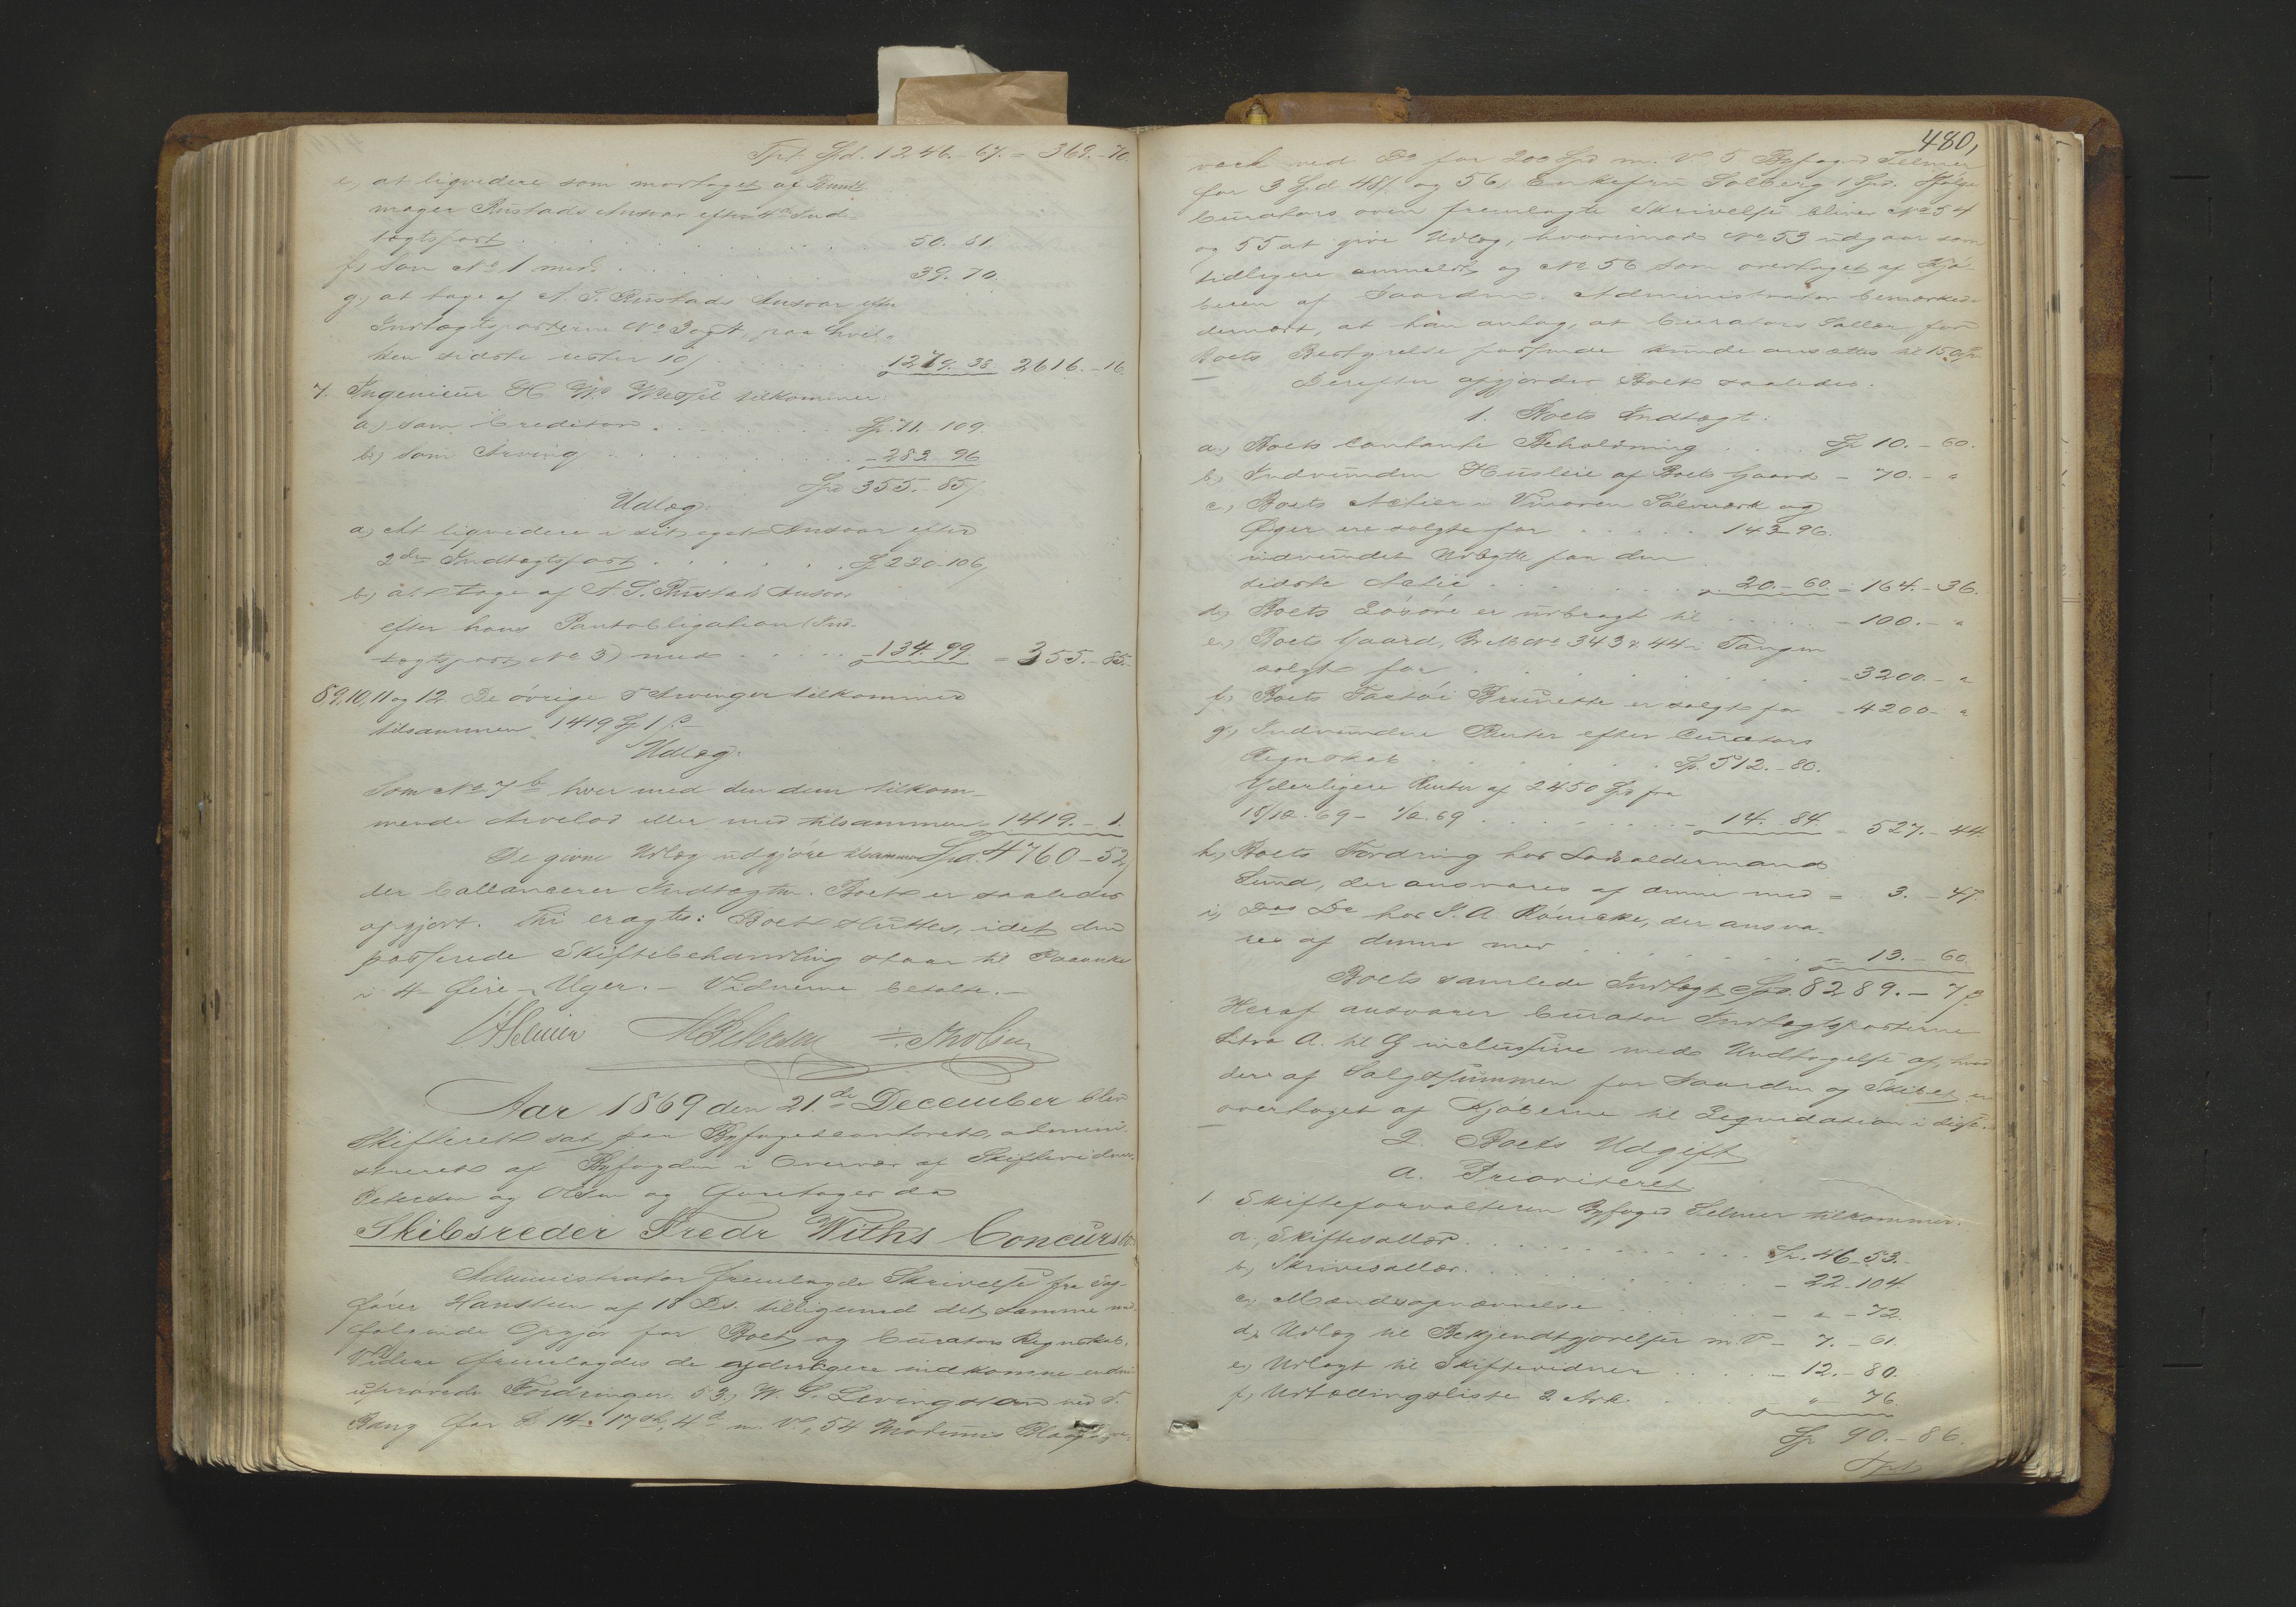 Tpt. Spd. 1246.-67. = 369.-70.
e, at liqvidere som modtaget af Bundt-
mager Rustads Ansvar efter 4de Ind-
tægtspost . . . 50. 81.
f, Som No 1 med . . . 39. 70.
g, at tage af A. S. Rustads Ansvar efter
Indtægtsposterne No 3 og 4, paa hvil-
ken sidste rester 10 . . . 1279. 38 2616.-16.
7. Ingenieur H Wessel tilkommer:
a, som Creditor . . . Sp. 71.-109.
b, som Arving . . . - 283. 96
Spd 355.-85
Udlæg:
a, At liqvidere i sit eget Ansvar efter
2den Indtægtspost . . . Sp 220-106,
b, at tage af A. S. Rustads Ansvar
efter hans Pantobligation (Ind-
tægtspost No 3) med . . . - 134. 99 = 355.-85.
8, 9, 10, 11 og 12. De øvrige 5 Arvinger tilkommer
tilsammen 1419 Sp 1 s
Udlæg:
Som No 7 b hver med den dem tilkom-
mende Arvelod eller med tilsammen - 1419.-1.
De givne Udlæg udgjøre tilsammen Spd. 4760-52,
der ballancerer Indtægten. Boet er saaledes
opgjort. Thi eragtes: Boet sluttes, idet den
passerede Skiftebehandling staar til Paaanke
i 4 - fire - Uger. - Vidnerne betalte. -
Selmer Petersen Olsen
Aar 1869 den 21de December blev
Skifteret sat paa Byfogedcontoret, admini-
streret af Byfogden i Overvær af Skiftevidner
Petersen og Olsen og foretoges da
Skibsreder Fredr Withs Concursbo
Administrator fremlagde Skrivelse fra Sag-
fører Hansteen af 18 Ds. tilligemed det samme med-
følgende Opgjør for Boet og Curators Regnskab.
Videre fremlagdes de yderligere indkomne endnu
uprøvede Fordringer. 53, W. S. Levingston ved S.
Bang for £ 14 " 17 sh, 4 d m. V., 54 Modums Blaafarve-
480,
værk ved Do for 200 Spd m. V. 55 Byfoged Selmer
for 3 Spd 48 s og 56, Enkefru Solberg 1 Spd. Ifølge
Curators oven fremlagte Skrivelse bliver No 54
og 55 at give Udlæg, hvorimod No 53 udgaar som
tidligere anmeldt og No 56 som overtaget af Kjø-
beren af Gaarden. Administrator bemærkede
dernæst, at han antog, at Curators Sallær for
Boets Bestyrelse passende kunde ansættes til 150 Sp.
Derefter opgjordes Boet saaledes:
1. Boets Indtægt:
a, Boets contante Beholdning . . . Sp 10.-60.
b, Indvunden Husleie af Boets Gaard - 70.- "
c, Boets Actier i Vinoren Sølvværk og
Øger ere solgte for . . . 143-96.
indvundet Udbytte paa den
sidste Actie . . . 20.-60 = 164.-36.
d, Boets Løsøre er udbragt til . . . - 100.- "
e, Boets Gaard, Br No 343 & 44 i Tangen
solgt for . . . - 3200.- "
f, Boets Fartøi Brunette er solgt for - 4200- "
g, Indvundne Renter efter Curators
Regnskab . . . Sp. 512.-80.
Yderligere Renter af 2450 Spd fra
18/10.69 - /12.69 . . . - 14. 84 - 527.-44.
h, Boets Fordring hos Lodsoldermand
Lund, der ansvares af denne med = 3.-47.
i, Dos Do hos J. A. Römcke, der ansva-
res af denne med . . . - 13.-60.
Boets samlede Indtægt Spd. 8289.-7 s.
Heraf ansvarer Curator Indtægtsposterne
Litra A. til G inclusive med Undtagelse af, hvad
der af Salgssummen for Gaarden og Skibet er
overtaget af Kjøberne til Liqvidation i disse.
2. Boets Udgift
a. Prioriteret
1. Skifteforvalteren Byfoged Selmer tilkommer:
a, Skiftesallær . . . Sp. 46-53.-
b, Skriversallær . . . - 22-104.
c, Mændsopnævnelse . . . - " - 72.
d, Udlæg til Bekjendtgjørelser m. V. - 7.-61.
e, Udlagt til Skiftevidner . . . - 12.-80.
f, Udlodningsliste 2 Ark . . . " 76.
Sp 90.-86.
Tpt